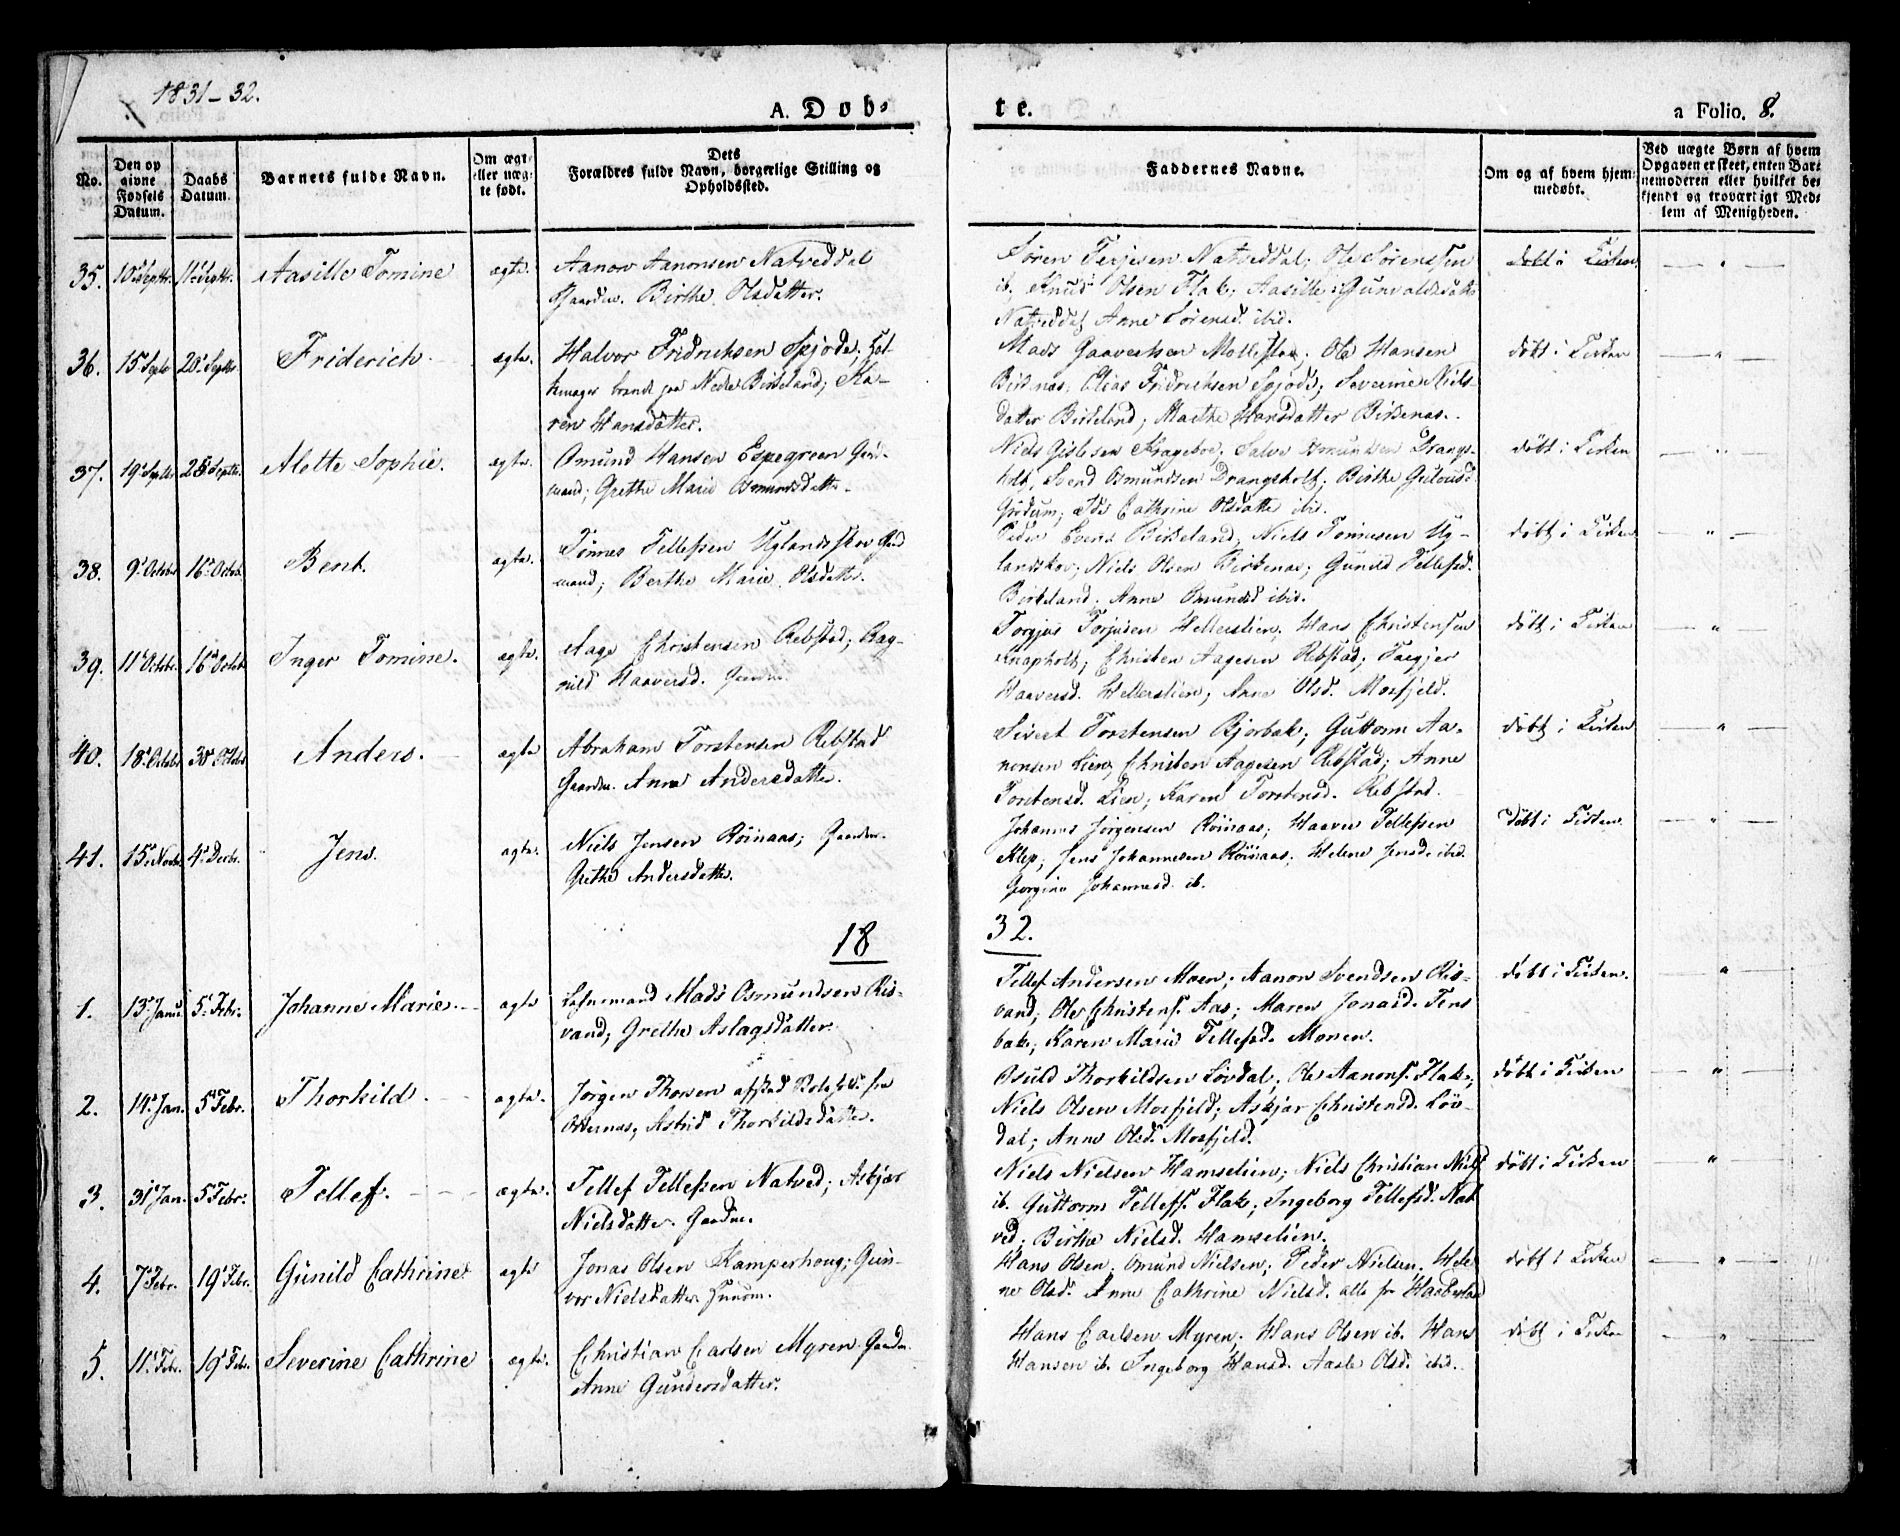 1831-32.
A. Døb-
te.
a Folio. 8.
No.
Den op
givne
Fødsels
Datum.
Daabs
Datum.
Barnets fulde Navn.
Om ægt
eller uæg-
te født.
Dets
Forældres fulde Navn, borgerlige Stilling og
Opholdssted.
Faddernes Navne.
Om og af hvem hjem-
medøbt.
Ved uægte Børn af hvem
Opgaven er skeet, enten Bar-
nemoderen eller hvilket be-
kjendt og troværdigt Med-
lem af Menigheden.
35. 10 Septr. 11 Septr. Aasille Tomine ægte.
Aanon Aanonsen Natveddal
Gaardm. Birthe Olsdatter.
Søren Terjesen Natveddal; Ole Sørensen
ib. Knud Olsen Flak; Aasille Gunvaldsdatt.
Natveddal Anne Sørensd. ibid.
døbt i Kirken
36. 15 Septr 20 Septr. Friderich ægte.
Halvor Fridrichsen Spjode,
paa Nedre Birkeland; Ka-
ren Hansdatter.
Mads Gaavesen Mollestad; Ole Hansen
Birkenæs; Elias Fridrichsen Spjode; Severine Niels-
datter Birkeland; Marthe Hansdatter Birkenas.
døbt i Kirken
37. 19 Septr 25 Septr. Alette Sophie. ægte.
Omund Hansen Espegreen Gaard-
mand; Grethe Marie Osmundsdatter.
Niels Gislesen Krageboe; Salve Osmundsen Drangs-
holt, Svend Osmundsen Drangsholt; Birthe
Cathrine Olsdatter ibid.
døbt i Kirken
38. 9 Octobr 16 Octob. Bent. ægte.
Tønnes Tellefsen Uglandsskov Gaard
mand; Berthe Marie Olsdatter.
Peder Evens. Birkeland; Niels Tønnesen Ug-
landskov; Niels Olsen Birkenas; Gunild Tellefsd.
Birkeland. Anne Omundsd ibid.
døbt i Kirken
39. 11 Octobr. 16 Octob Inger Tomine. ægte.
Aage Christensen Rebstad; Rag-
nild Haaversd. Gaardm.
Torgjus Torjusen Hellerslien. Hans Christensen
Knapholt; Christen Aagesen Rebstad; Targjer
Haaversd. Hellerslien; Anne Olsd. Mosfjeld.
døbt i Kirken
40. 18 Octobr 30 Octobr Anders. ægte
Abraham Torstensen Rebstad
Gaardm. Anne Andersdatter.
Sivert Torstensen Bjorbak; Guttorm Aa-
nonsen Lien; Christen Aagesen Rebstad; Anne
Torstensd. Lien; Karen Torstensd. Rebstad.
døbt i Kirken
41. 15 Novbr 4 Decbr. Jens. ægte.
Niels Jensen Röinaas; Gaardm.
Grethe Andersdatter.
Johannes Jørgensen Röinaas; Haaver Tellefsen
Klep; Jens Johannesen Röinaas; Helene Jensd. ibid.
Georgine Johannesd. ib.
døbt i Kirken
18
32.
1. 13 Janu. 5 Febr. Johanne Marie. ægte
Mads Osmundsen Ris-
vand; Grethe Aslagsdatter.
Tellef Andersen Moen; Aanon Svendsen Ris-
vand; Ole Christens. Aas; Maren Jonasd. Tens
bak; Karen Marie Tellefsd. Monen.
døbt i Kirken.
2. 14 Jan. 5 Febr. Thorkild. ægte.
Jørgen Thorsen
Astrid Thorkildsdatter.
Osuld Thorkildsen Lövdal; Ole Aanons. Flak;
Niels Olsen Mosfjeld; Askjar Christensd. Löv-
dal; Anne Olsd. Mosfjeld.
døbt i Kirken
3. 31 Jan. 5 Febr. Tellef. ægte.
Tellef Tellefsen Natved; Askjær
Nielsdatter. Gaardm.
Niels Nielsen Hamselien; Niels Christian Niels.
ib. Guttorm Tellefs. Flak; Ingeborg Tellefsd. Nat
ved; Birthe Nielsd. Hamselien.
døbt i Kirken
4. 7 Febr. 19 Febr. Gunild Cathrine ægte
Jonas Olsen Kamperhoug; Gun-
vor Nielsdatter. Huusm.
Hans Olsen; Omund Nielsen; Peder Nielsen. Hele
ne Olsd. Anne Cathrine Nielsd. alle fr
døbt i Kirken
5. 11 Febr. 19 Febr. Severine Cathrine ægte.
Christian Carlsen Myren Gaardm.
Anne Gundersdatter.
Hans Carlsen Myren; Hans Olsen ib. Hans
Hansen ib. Ingeborg Hansd. Aasle Olsd. ibid.
døbt i Kirken